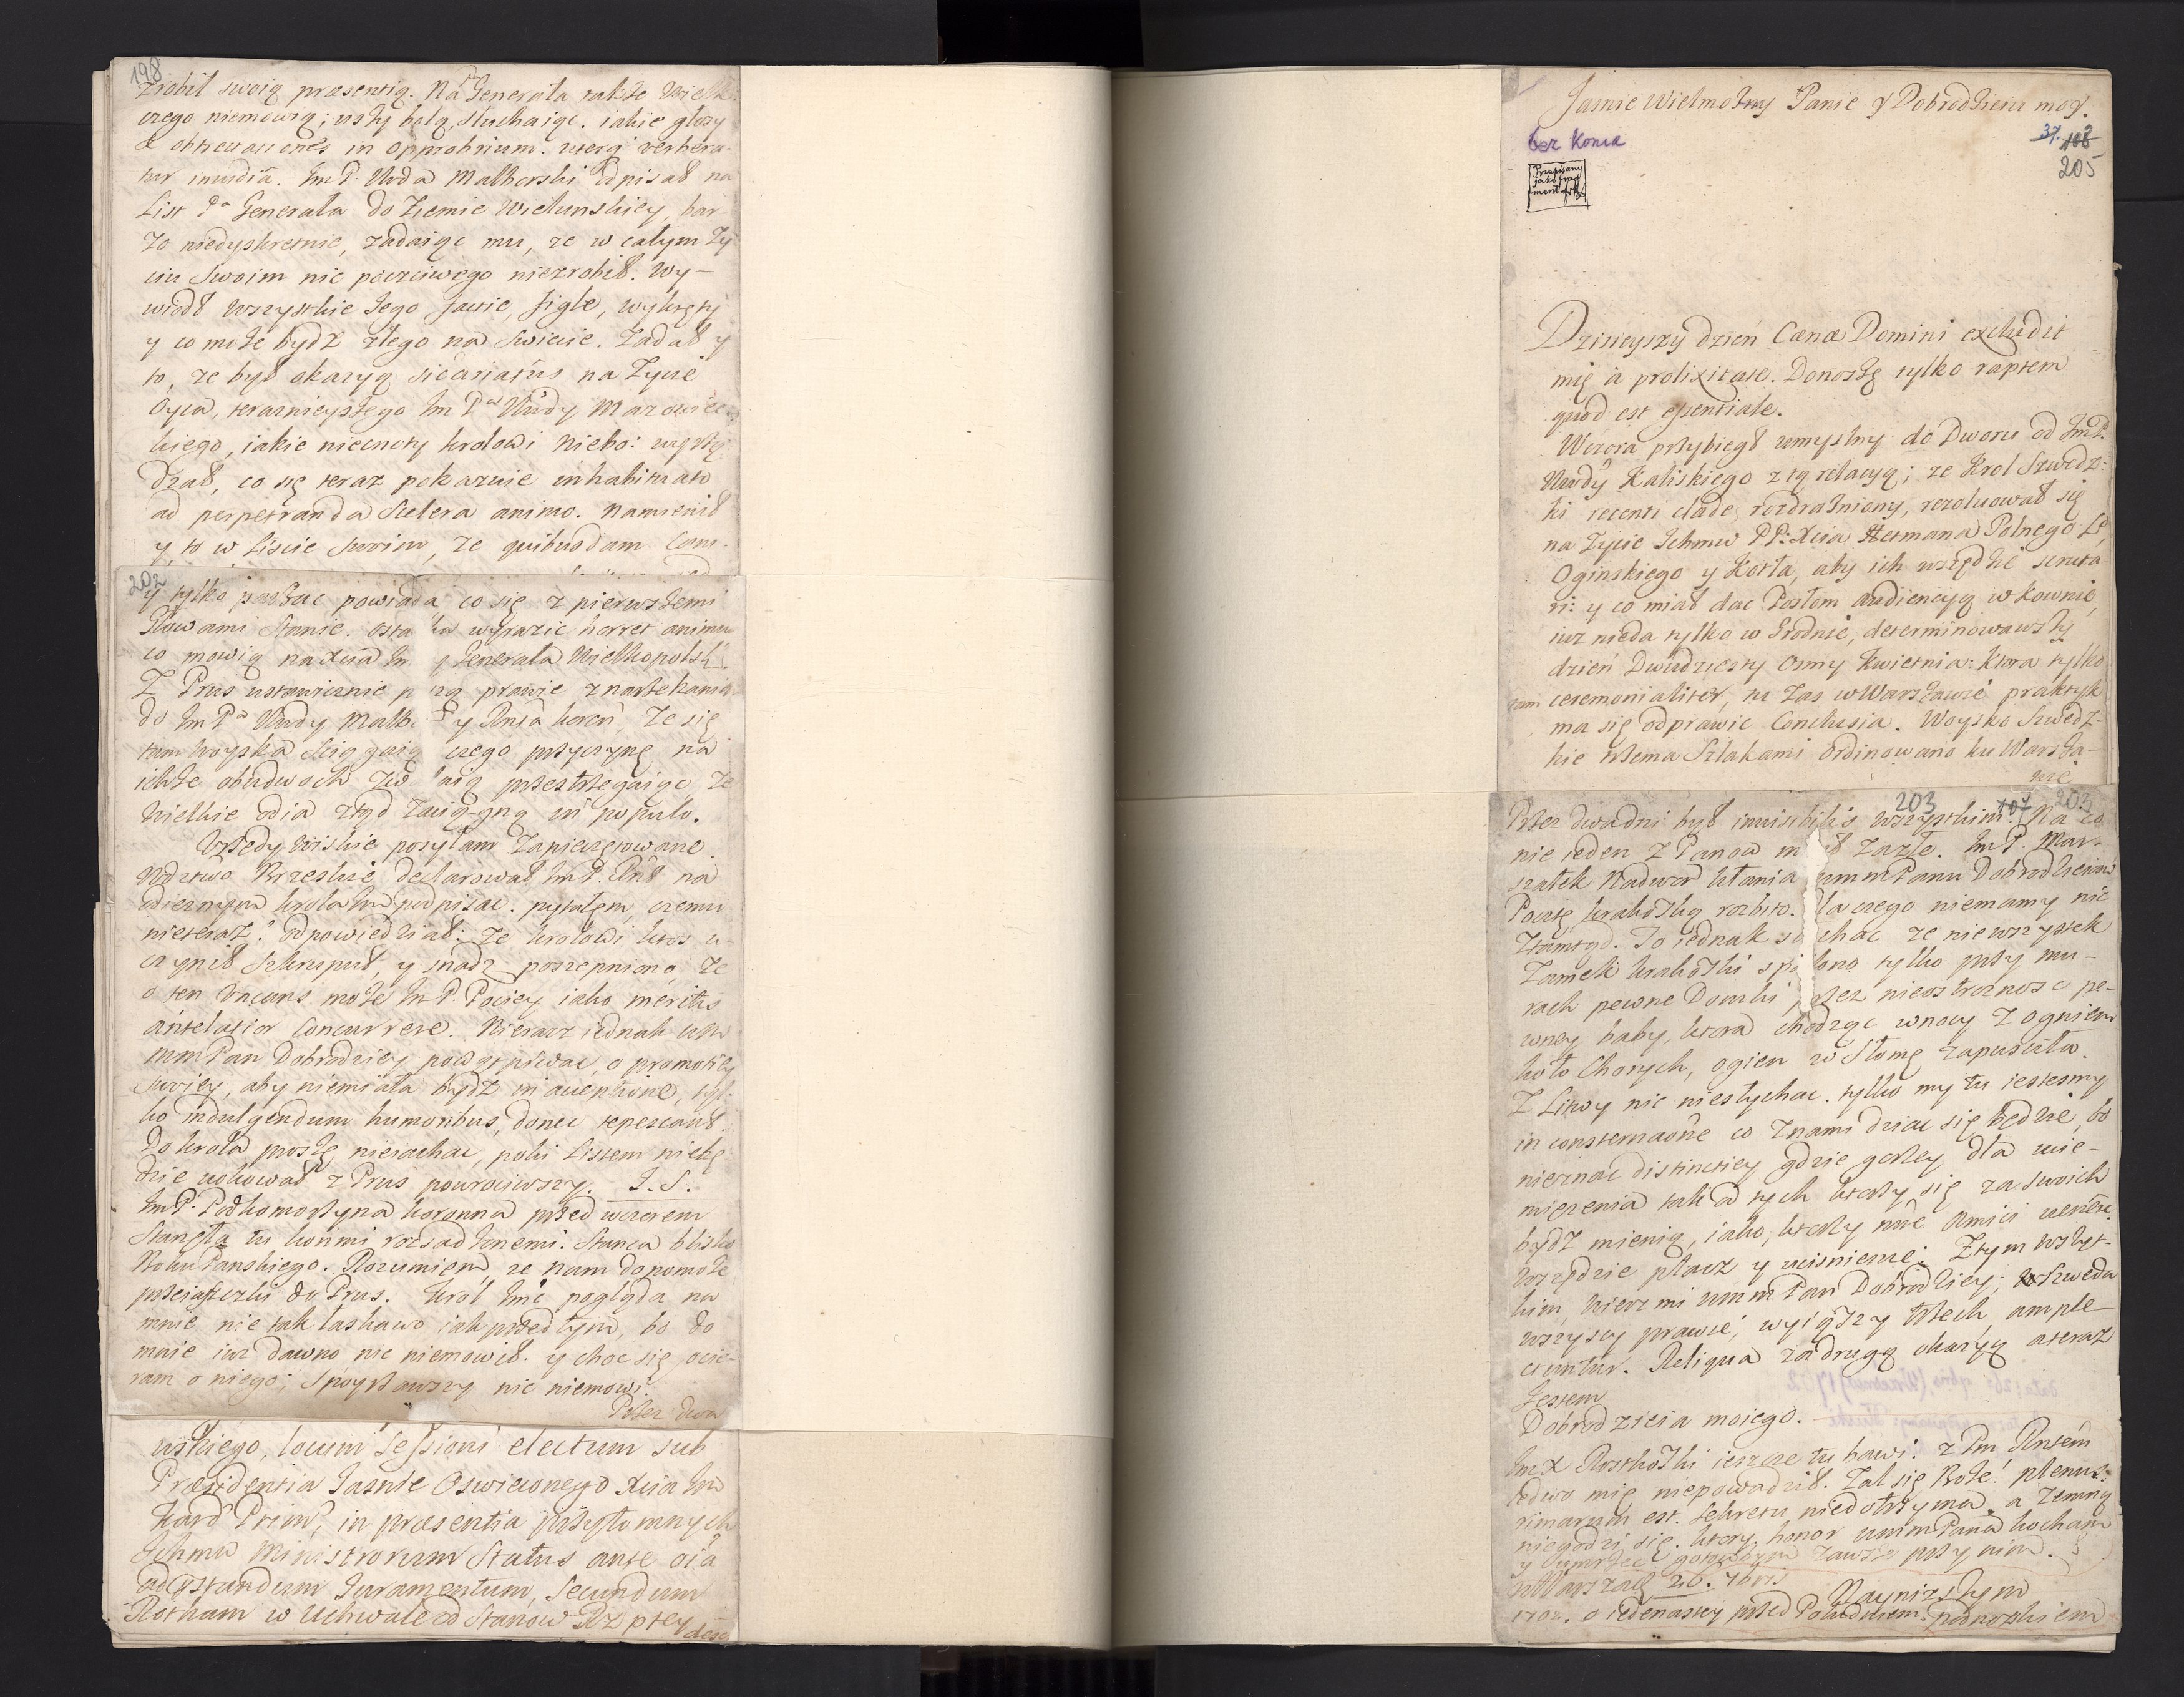 198
zrobił swoią præsentią. Na Pa Generała także wiele
czego niemowią; uszy bolą, słuchaiąc. iakie głosy
in opprobrium. verbera-
tur invidia. Im P. Wda Malborski odpisał na
List Pa Generała do Ziemie Wielunskiey, bar-
zo niedyskretnie, zadaiąc mu, ze w całym ży
ciu swoim nic poczciwego niezrobił. Wy-
wiodł wszystkie Jego figle, wykręty
y co może bydz złego na swiecie. Zadał y
to, ze był okazyą sicariatus na Zycie
Oyca, teraznieyszego Im Pa Wdy Mazowiec
kiego, iakie niecnoty krolowi niebo:
dzał, co się teraz pokazuie inhabituato
ad perpetranda Scelera animo. namienił
y to w Liscie swoim, ze quibusdam Com-
202
y tylko powiada, co się z pierwszemi
słowami stanie. wyrazic horret animus
co mowią na Xcia Im y Generała Wielkopolsk.
Z Prus ustawicznie prawie z narzekania
do Im Pa Wdy Malb. y
tam woyska sciągaią czego przyczynę na
ichże obudwoch przestrzegaiąc, ze
wielkie odia ztąd in populo.
posyłam zapieczętowane.
Wdztwo Brzeskie declarował Im P. na
krola podpisac. pytałem, czemu
nieteraz? odpowiedział: ze krolowi ktos u-
czynił skrupuł, y snadz poszepniono, ze
o ten vacans może Im P. Pociey iako meritis
antelatior concurrere. Nieracz iednak
mm Pan Dobrodziey powątpiewac, o promotiey
swoiey, aby niemiała bydz tyl-
ko indulgendum humoribus, donec
Do krola proszę nieiachac, poki Listem niebę
dzie wokował z Prus powrociwszy. I. S.
Im P. Podkomorzyna koronna przed wczorem
stanęła tu konmi rozsadzonemi. Stanęła blisko
Boku Panskiego. Rozumiem, ze nam dopomoże
do Prus. Krol Imć pogląda na
mnie nie tak łaskawo iak przedtym, bo do
mnie iuz dawno nic niemowił. y choc się ocie-
ram o niego; spoyrzawszy nic niemowi.
Przez dwa
uskiego, locum sessioni electum sub
Præsidentia Jasnie Oswieconego Xcia Im
Kard Prim, in præsentia przytomnych
Ichmw Ministrorum Status ante oia
ad præstandum Juramentum, secundum
Rotham w Uchwale od Stanow Rzptey
Jasnie Wielmożny Panie y Dobrodzieiu moy.
bez konca
37. 108
205
Przepisano
jako frag
ment
Dzisieyszy dzień Cænæ Domini excludit
mię à prolixitate. Donoszę tylko raptem
quod est essentiale.
Wczora przybiegł umyslny do Dworu od Im P.
Wdy Kaliskiego z tą relacyą; ze Krol Szwedz-
ki recenti clade rozdrażniony, rezoluował się
na Zycie Ichmw PP: Xcia Hetmana Polnego L,
Oginskiego y Kotła, aby ich wszędzie scruta-
ri: y co miał dac Posłom audiencyą w Kownie,
iuz nieda tylko w Grodnie, determinowawszy
dzień Dwudziesty osmy Kwietnia: Ktora tylko
tam ceremonialiter, tu zas w Warszawie praktyk
ma się odprawic Conclusia. Woysko Szwedz-
kie trzema Szlakami ordinowano ku Warsza-
wie
203 107 203
Przez dwa dni był invisibilis wszystkim. Na co
nie ieden z Panow m ł zazłe. Im P. Mar-
szałek Nadwor kłania mm Panu Dobrodzieiowi
Pocztę krakoską rozbito. dla czego niemamy nic
ztamtąd. To iednak słychac ze niewszystek
Zamek krakoski spalono tylko przy mu-
rach pewne Domki przez nieostroznosc pe-
wney baby, ktora chodząc w nocy z ogniem
koło Chorych, ogien w słomę zapusciła.
Z Litwy nic niesłychac. tylko my tu iestesmy
in consternaone co z nami dziac się będzie, bo
nieznac distinctiey gdzie gorzey dla ucie-
mięzenia tak od tych ktorzy się za swoich
bydz mienią, iako, ktorzy
wszędzie płacz y ucisnienie. Z tym wszyt-
kim, wierz mi mm Pan Dobrodziey, Szweda
wszyscy prawie, wyiąwszy trzech, ample-
ctuntur. Reliqua za drugą okazyą a teraz
Jestem
Dobrodzieia moiego.
Im X ieszcze tu bawi. z Im
ledwo mię niepowadził. Zal się Boże! plenus
rimarum est. Sekretu niedotrzyma, a zemną
niegodzi się, ktory honor mm Pana kocham
y umrzec gotowbym zawsze przy nim.
w Warszaw 26. 7bris
1702. o iedenastey przed Południem.
Naynizszym
podnozkiem